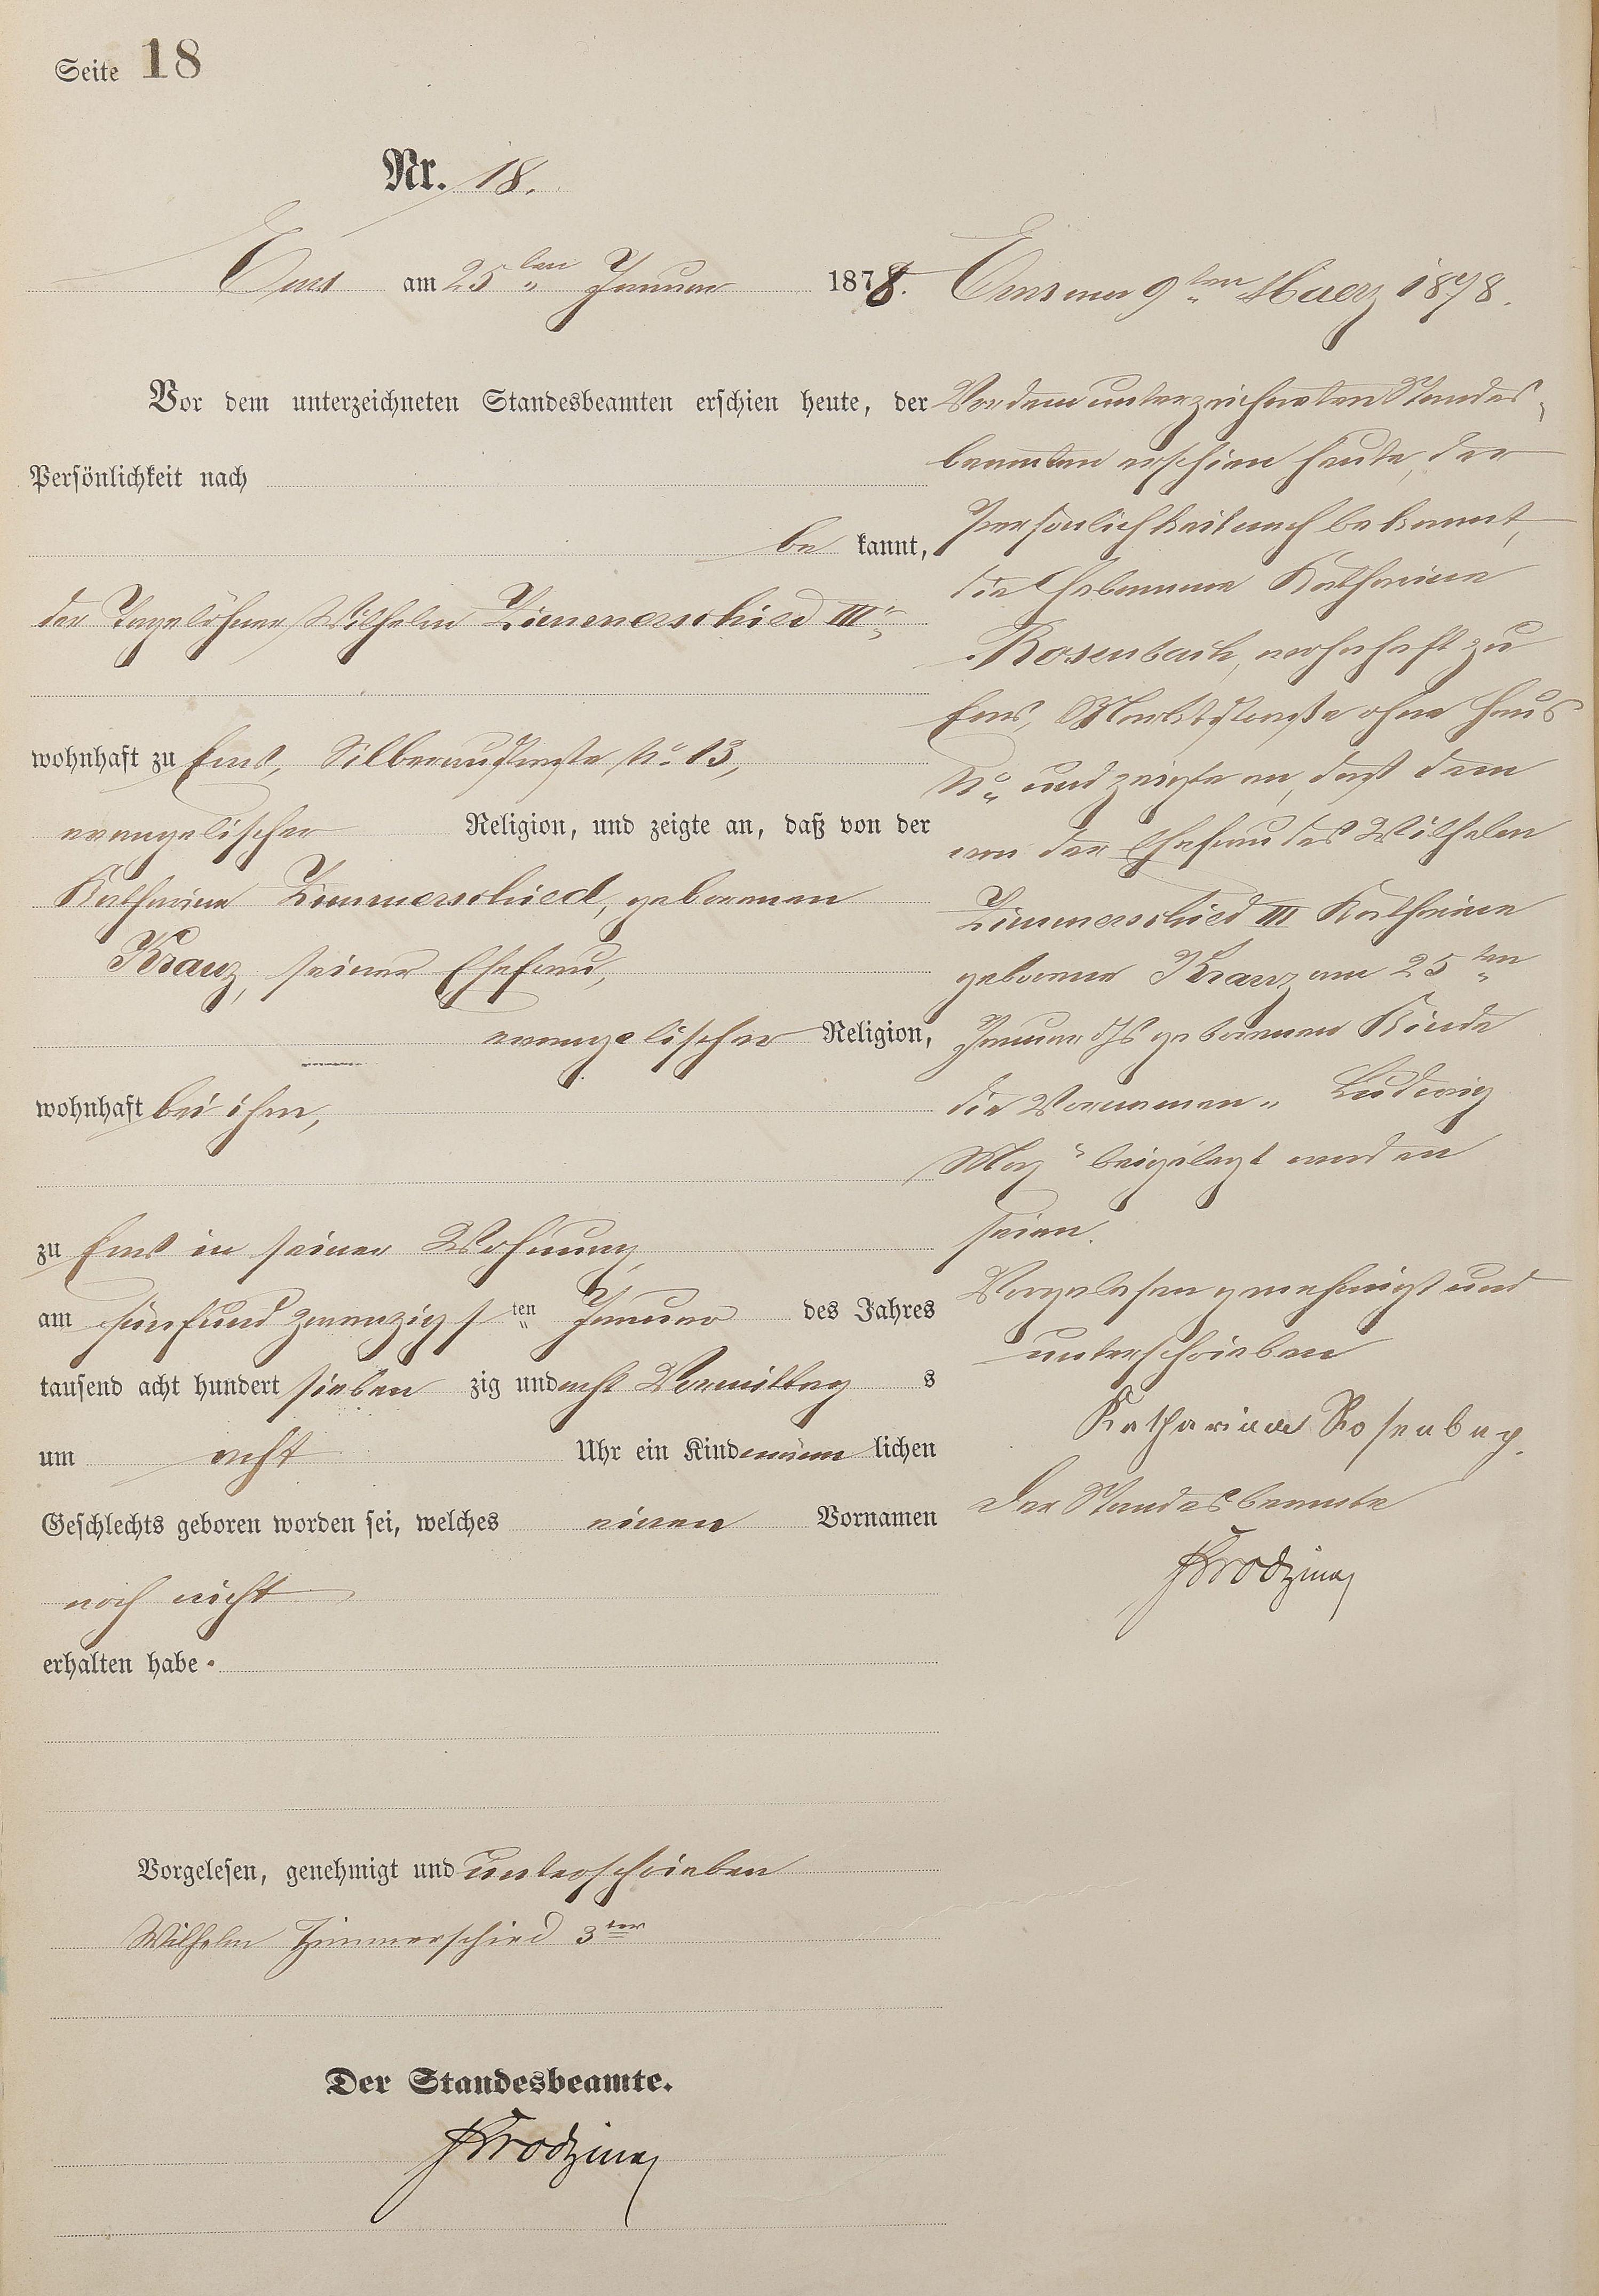 Seite 18
Nr. 18.
Ems am 25ten Januar 1878.
Vor dem unterzeichneten Standesbeamten erschien heute, der
Persönlichkeit nach
be kannt,
der Tagelöhner Wilhelm Zimmerschied III.
wohnhaft zu Ems, Silberaustraße No. 13,
evangelischer Religion, und zeigte an, daß von der
Katharine Zimmerschied, geborenen
Kranz, seiner Ehefrau,
evangelischer Religion,
wohnhaft bei ihm,
zu Ems in seiner Wohnung
am fünfundzwanzigsten Januar des Jahres
tausend acht hundert sieben zig und acht Vormittag s
um acht Uhr ein Kind männ lichen
Geschlechts geboren worden sei, welches einen Vornamen
noch nicht
erhalten habe.
Vorgelesen, genehmigt und unterschrieben
Wilhelm Zimmerschied 3ter
Der Standesbeamte.
Ems am 9ten Maerz 1878.
Vor dem unterzeichneten Standes-
beamten erschien heute, der
Persönlichkeit nach bekannt,
die Hebamme Katharine
Rosenbach, wohnhaft zu
Ems, Marktstraße ohne Haus
No. und zeigte an, daß dem
von der Ehefrau des Wilhelm
Zimmerschied III Katharine
geborene Kranz am 25ten
Januar ds Js geborenen Kinde
die Vornamen „Ludwig
Max" beigelegt worden
seien.
Vorgelesen genehmigt und
unterschrieben
Katharina Rosenbach.
Der Standesbeamte